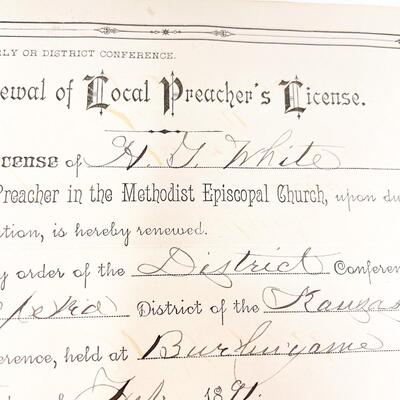 RLY OR DISTRICT CONFERENCE.
ewal of Local Preacher's License.
icense of H. T. White
Preacher in the Methodist Episcopal Church, upon du
tion, is hereby renewed.
y order of the District Conferen
peka District of the Kansas
erence, held at Burlingame
1891.